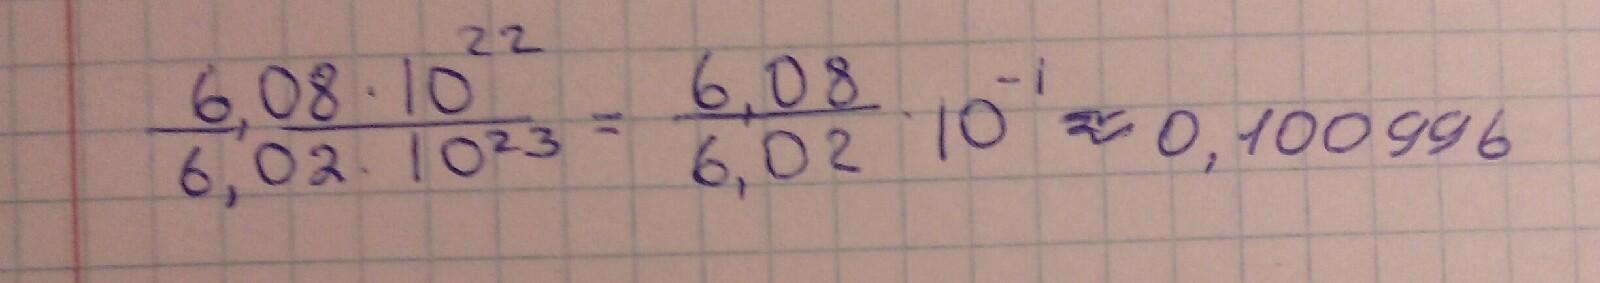 6,08 · 10²² / 6,02 · 10²³ = 6,08 / 6,02 · 10⁻¹ ≈ 0,100996